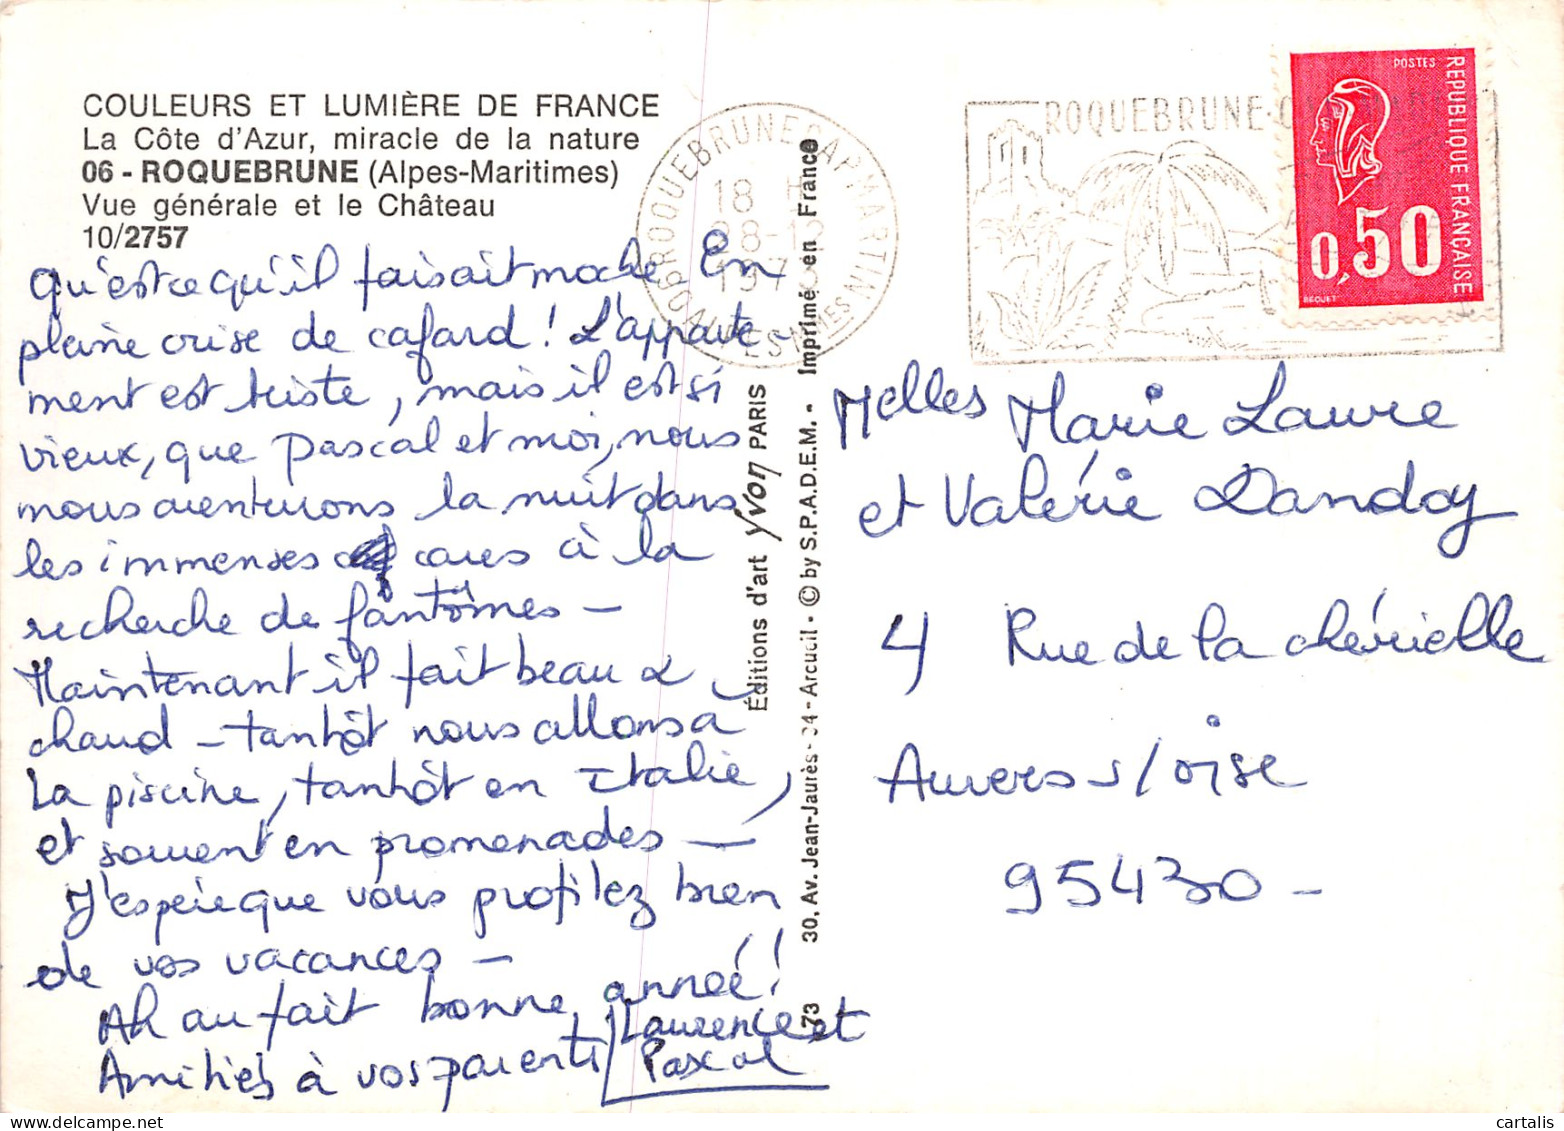 COULEURS ET LUMIÈRE DE FRANCE
La Côte d'Azur, miracle de la nature
06 - ROQUEBRUNE (Alpes-Maritimes)
Vue générale et le Château
10/2757
Qu'est ce qu'il faisait moche En
pleine crise de cafard ! L'apparte-
ment est triste, mais il est si
vieux, que Pascal et moi, nous
nous aventurons la nuit dans
les immenses caves à la
recherche de fantômes -
Maintenant il fait beau &
chaud - tantôt nous allons à
la piscine, tantôt en Italie,
et souvent en promenades -
J'espère que vous profitez bien
de vos vacances -
Ah au fait bonne année !
Amitiés à vos parents
Laurence et
Pascal
06 ROQUEBRUNE CAP MARTIN
ALPES MMES
18 H
ROQUEBRUNE-C
POSTES
REPUBLIQUE FRANÇAISE
0,50
BEQUET
Éditions d'art Yvon PARIS
73 30, Av. Jean-Jaurès - 94 - Arcueil - © by S.P.A.D.E.M. - Imprimé en France
Melles Marie Laure
et Valérie Dandoy
4 Rue de la chérielle
Auvers s/oise
95430 -
cartalis